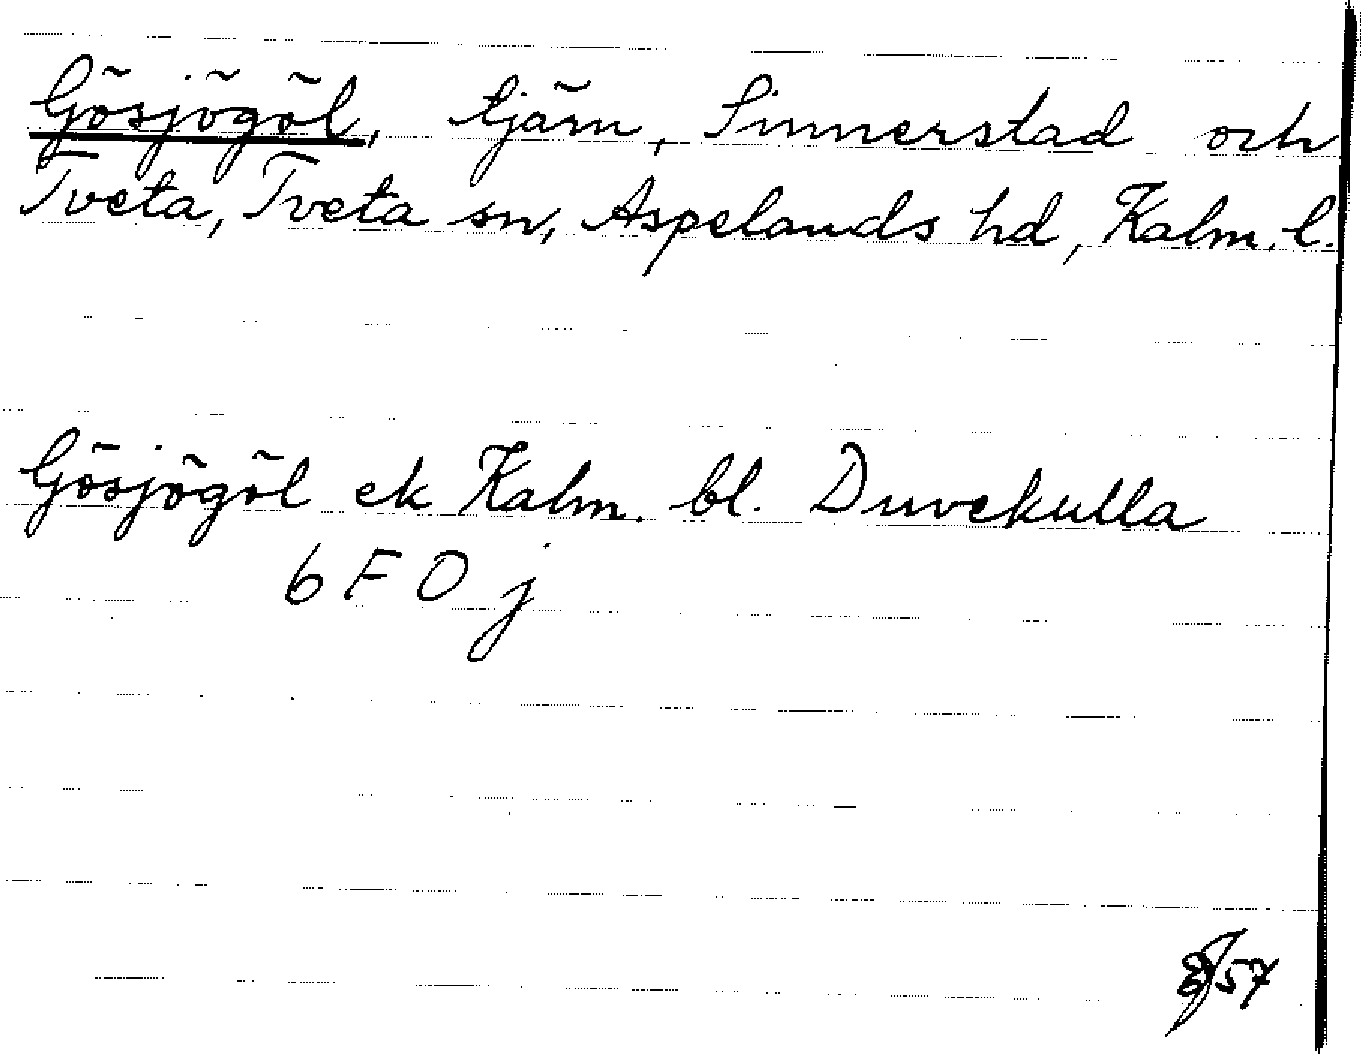 Gösjögöl, tjärn, Sinnerstad och
Tveta, Tveta sn, Aspelands hd, Kalm. l.
Gösjögöl ek Kalm. bl. Duvekulla
6 F O j
57